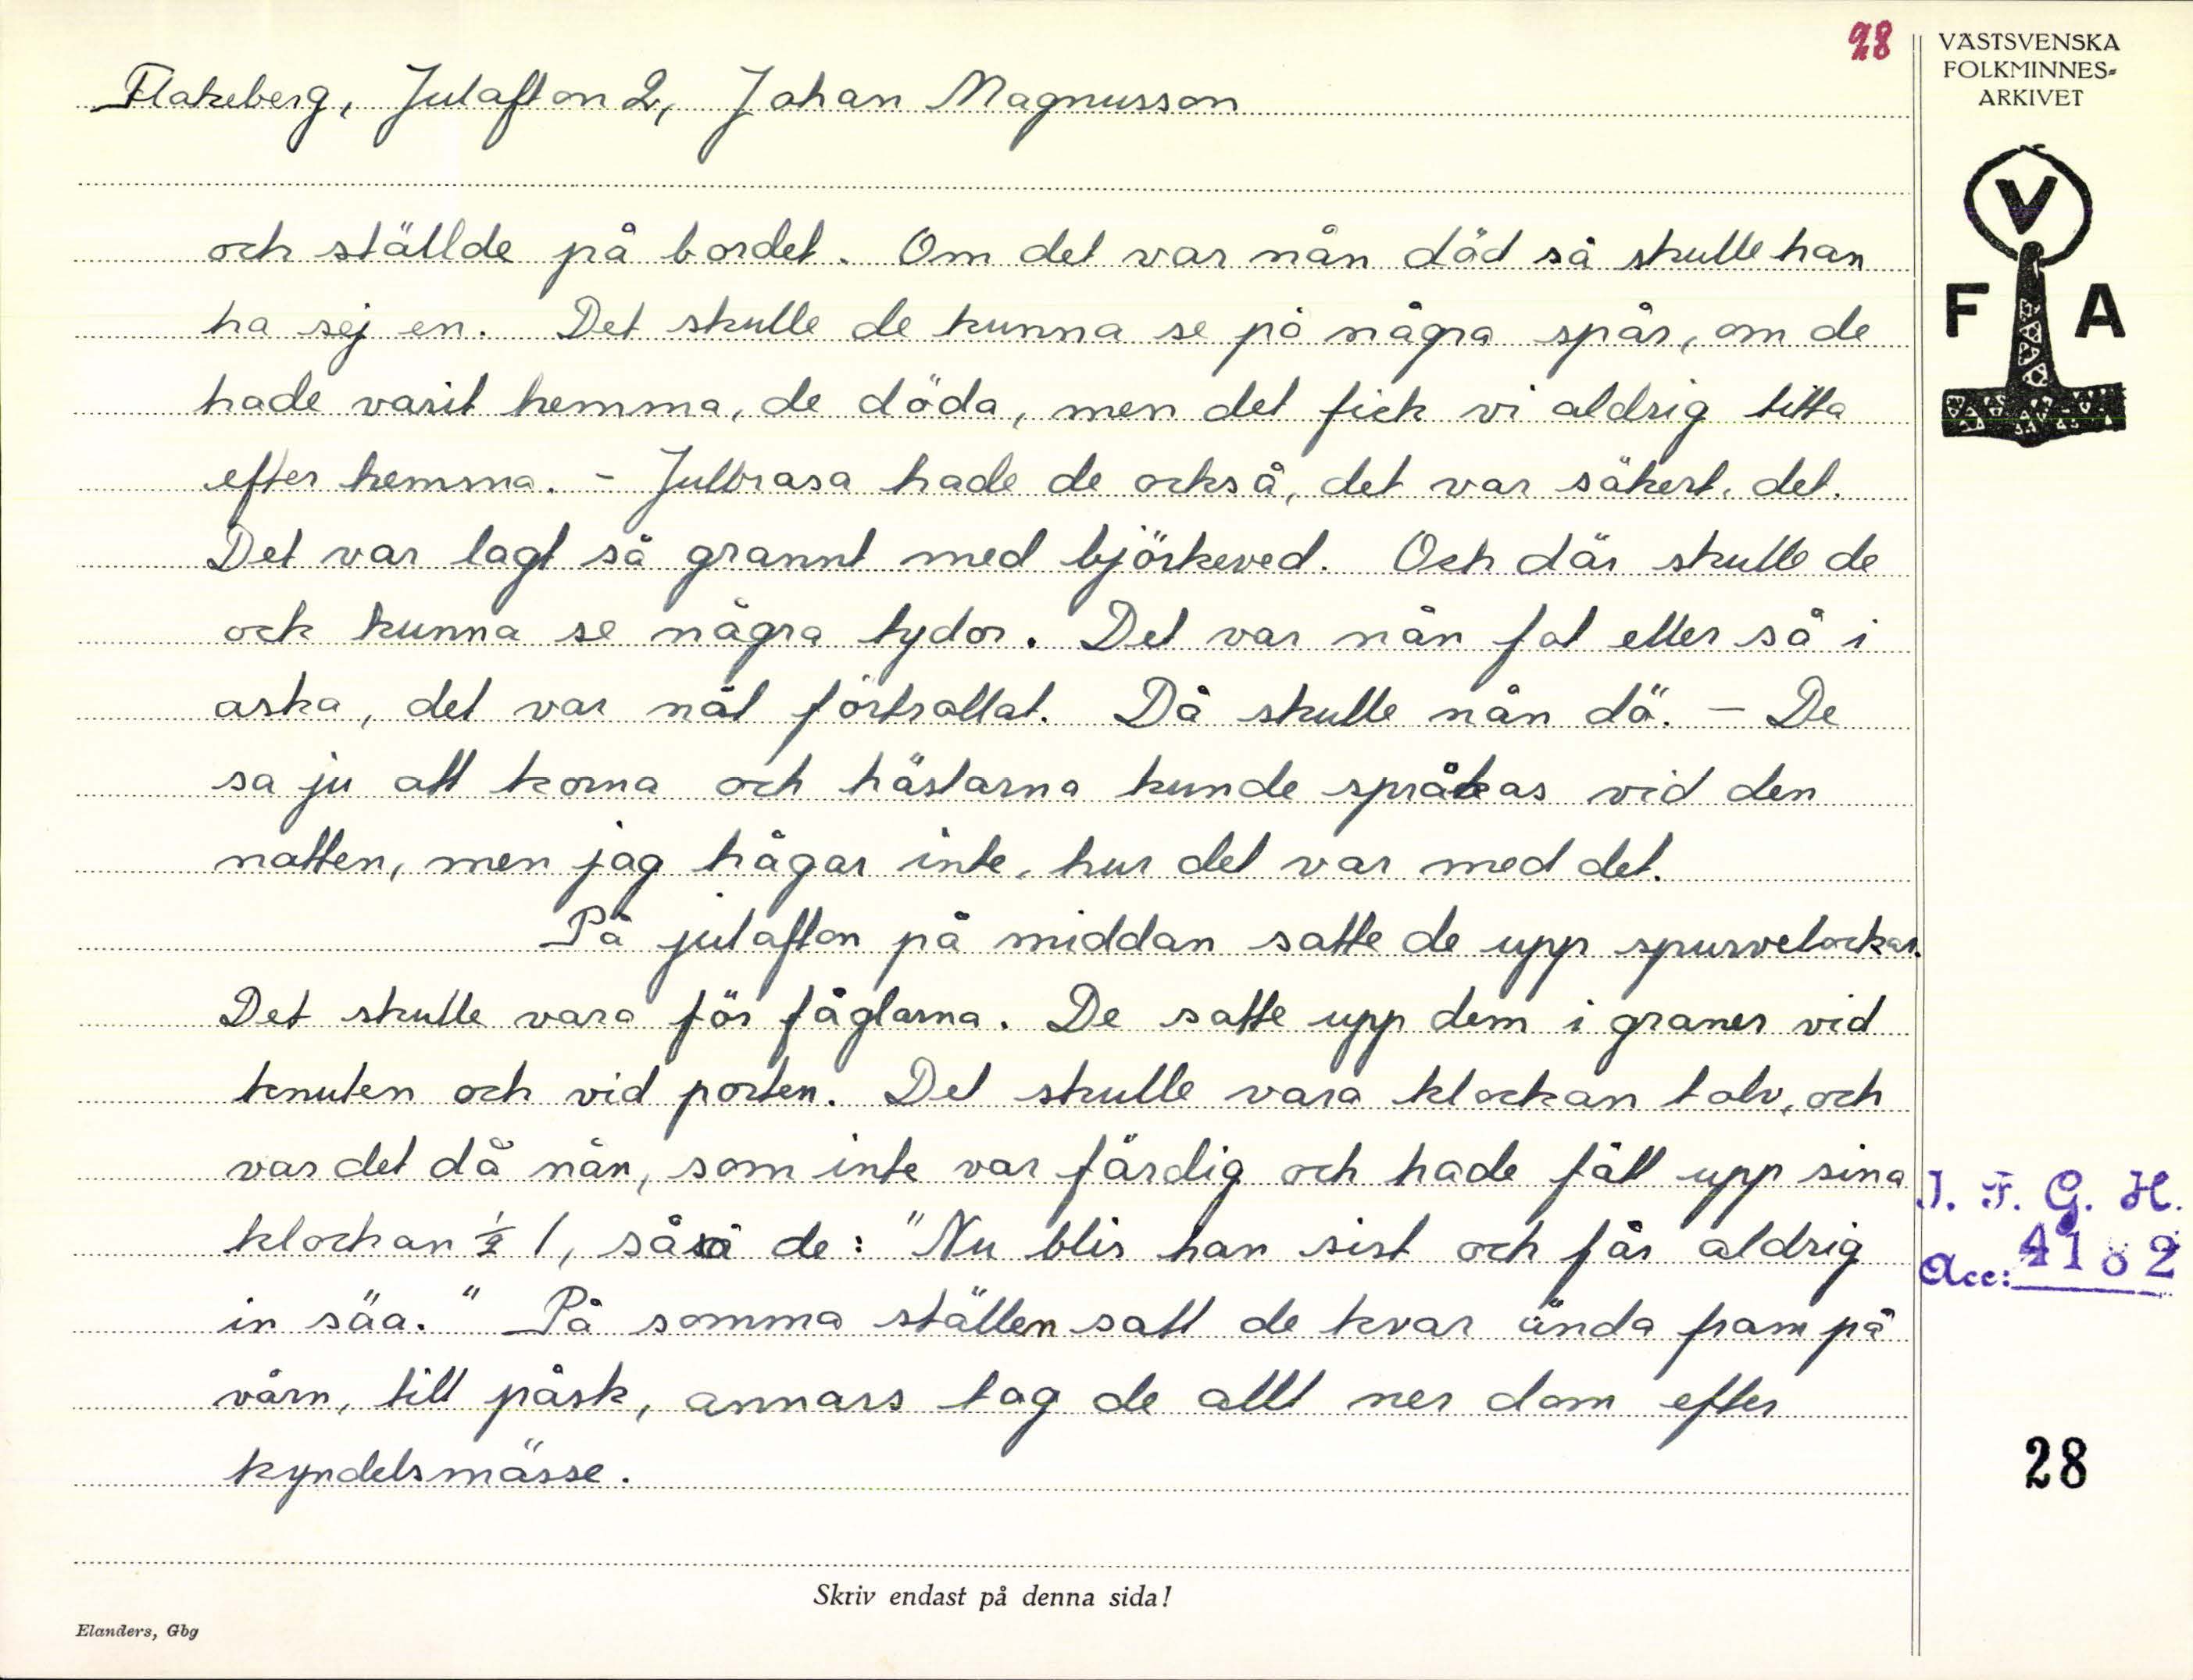 28
VÄSTSVENSKA
FOLKMINNES-
ARKIVET
Flakeberg, Julafton 2, Johan Magnusson
V
F A
och ställde på bordet. Om det var nån död så skulle han
ha sej en. Det skulle de kunna se på några spår, om de
hade varit hemma, de döda, men det fick vi aldrig titta
efter hemma. - Julbrasa hade de också, det var säkert, det.
Det var lagt så grannt med björkeved. Och där skulle de
ock kunna se några tydor. Det var nån fot eller så i
aska, det var nåt förtrollat. Då skulle nån dö. - De
sa ju att korna och hästarna kunde språkas vid den
natten, men jag hågar inte, hur det var med det.
På julafton på middan satte de upp spurvelockar.
Det skulle vara för fåglarna. De satte upp dem i graner vid
knuten och vid porten. Det skulle vara klockan tolv, och
var det då nån, som inte var färdig och hade fått upp sina
klockan ½ 1, så sa de: "Nu blir han sist och får aldrig
in säa." På somma ställen satt de kvar ända fram på
vårn, till påsk, annars tog de allt ner dom efter
kyndelsmässe.
I. F. G. H.
Acc: 4182
28
Skriv endast på denna sida!
Elanders, Gbg